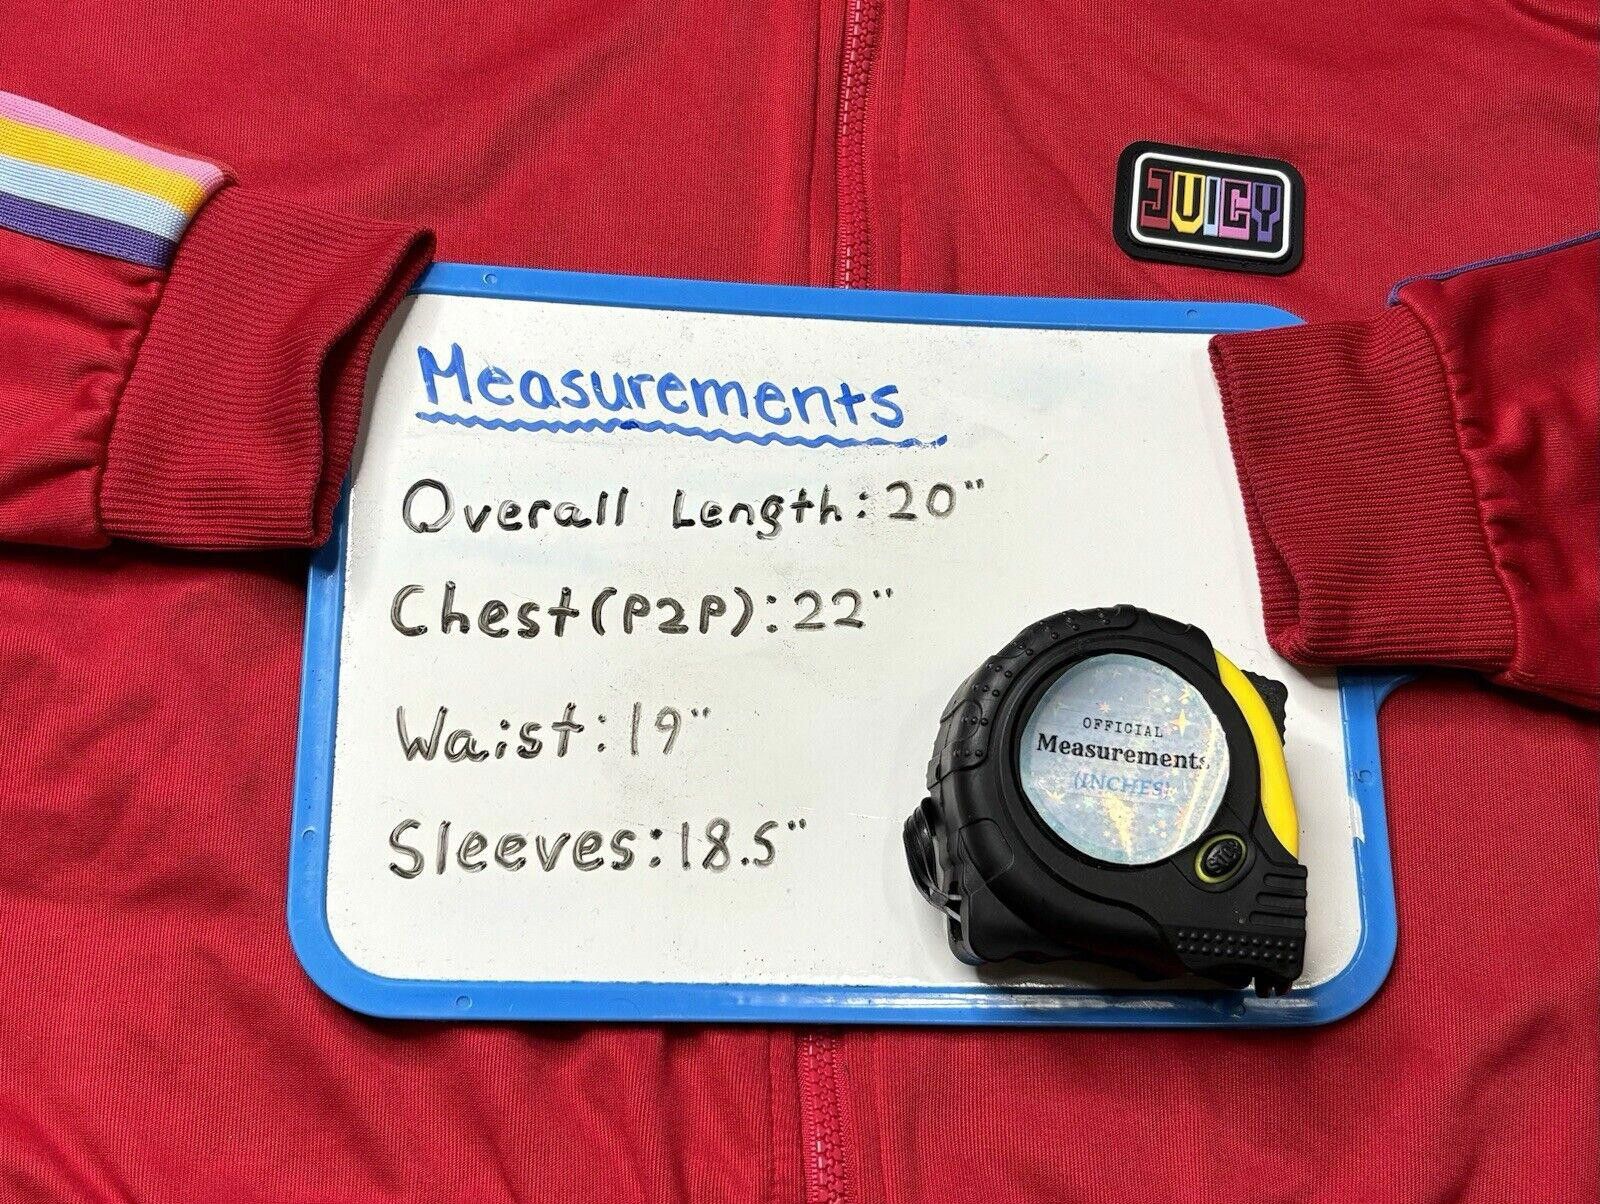 JUICY
Measurements
Overall Length: 20"
Chest (P2P): 22"
Waist: 19"
Sleeves: 18.5"
OFFICIAL
Measurements
(INCHES)